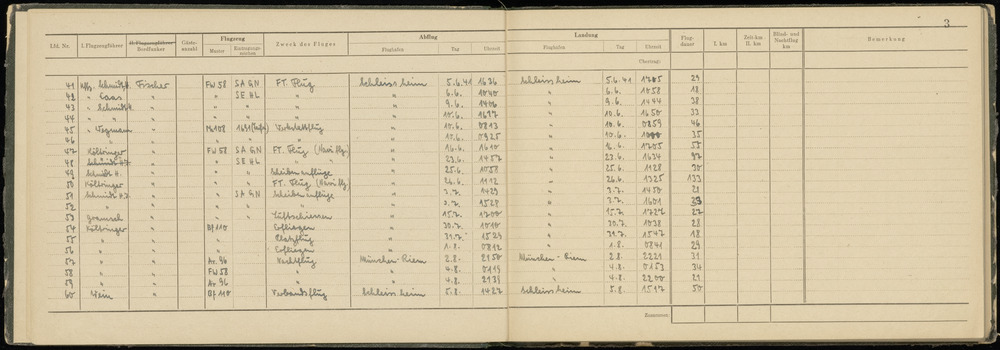 3
Lfd. Nr. I. Flugzeugführer II. Flugzeugführer Bordfunker Gäste-anzahl Flugzeug Muster Eintragungs-nummer Zweck des Fluges Abflug Flughafen Tag Uhrzeit Landung Flughafen Tag Uhrzeit Flug-dauer I. km Zeit km fl. km Blind- und Nachtflug km Bemerkung
Übertrag:
41 Uffz. Fischer FW 58 SA GN FT. Flug Schleissheim 5.6.41 1636 Schleissheim 5.6.41 1705 29
42 " " " SE HL " " 6.6. 1040 " 6.6. 1058 18
43 " " " " " " 9.6. 1406 " 9.6. 1444 38
44 " " " " " " " 10.6. 1617 " 10.6. 1650 33
45 " Wegmann " Me 108 Werkstattflug " 10.6. 0813 " 10.6. 0859 46
46 " " " " " " " 10.6. 0925 " 10.6. 35
47 Költringer " FW 58 SA GN FT. Flug " 16.6. 1610 " 16.6. 1705 55
48 " " SE HL " " " 23.6. " 23.6. 1634
49 Schmidt H. " " " Scheibenanflüge " 25.6. 1058 " 25.6. 1128 30
50 Költringer " " " FT. Flug " 26.6. 1112 " 26.6. 1325 133
51 " " SA GN Scheibenanflüge " 3.7. 1429 " 3.7. 1450 21
52 " " " " " " 3.7. 1528 " 3.7. 1601 33
53 " " " Luftschiessen " 15.7. 1700 " 15.7. 1727 27
54 Költringer " Bf 110 Einfliegen " 30.7. 1010 " 30.7. 1038 28
55 " " " Platzflug " 31.7. 1529 " 31.7. 1547 18
56 " " " Einfliegen " 1.8. 0812 " 1.8. 0841 29
57 " " Ar. 96 Nachtflug München-Riem 2.8. 2150 München-Riem 2.8. 2221 31
58 " " FW 58 " " 4.8. 0119 " 4.8. 0153 34
59 " " Ar. 96 " " 4.8. 2139 " 4.8. 2200 21
60 " Bf 110 Verbandsflug Schleissheim 5.8. 1427 Schleissheim 5.8. 1517 50
Zusammen: